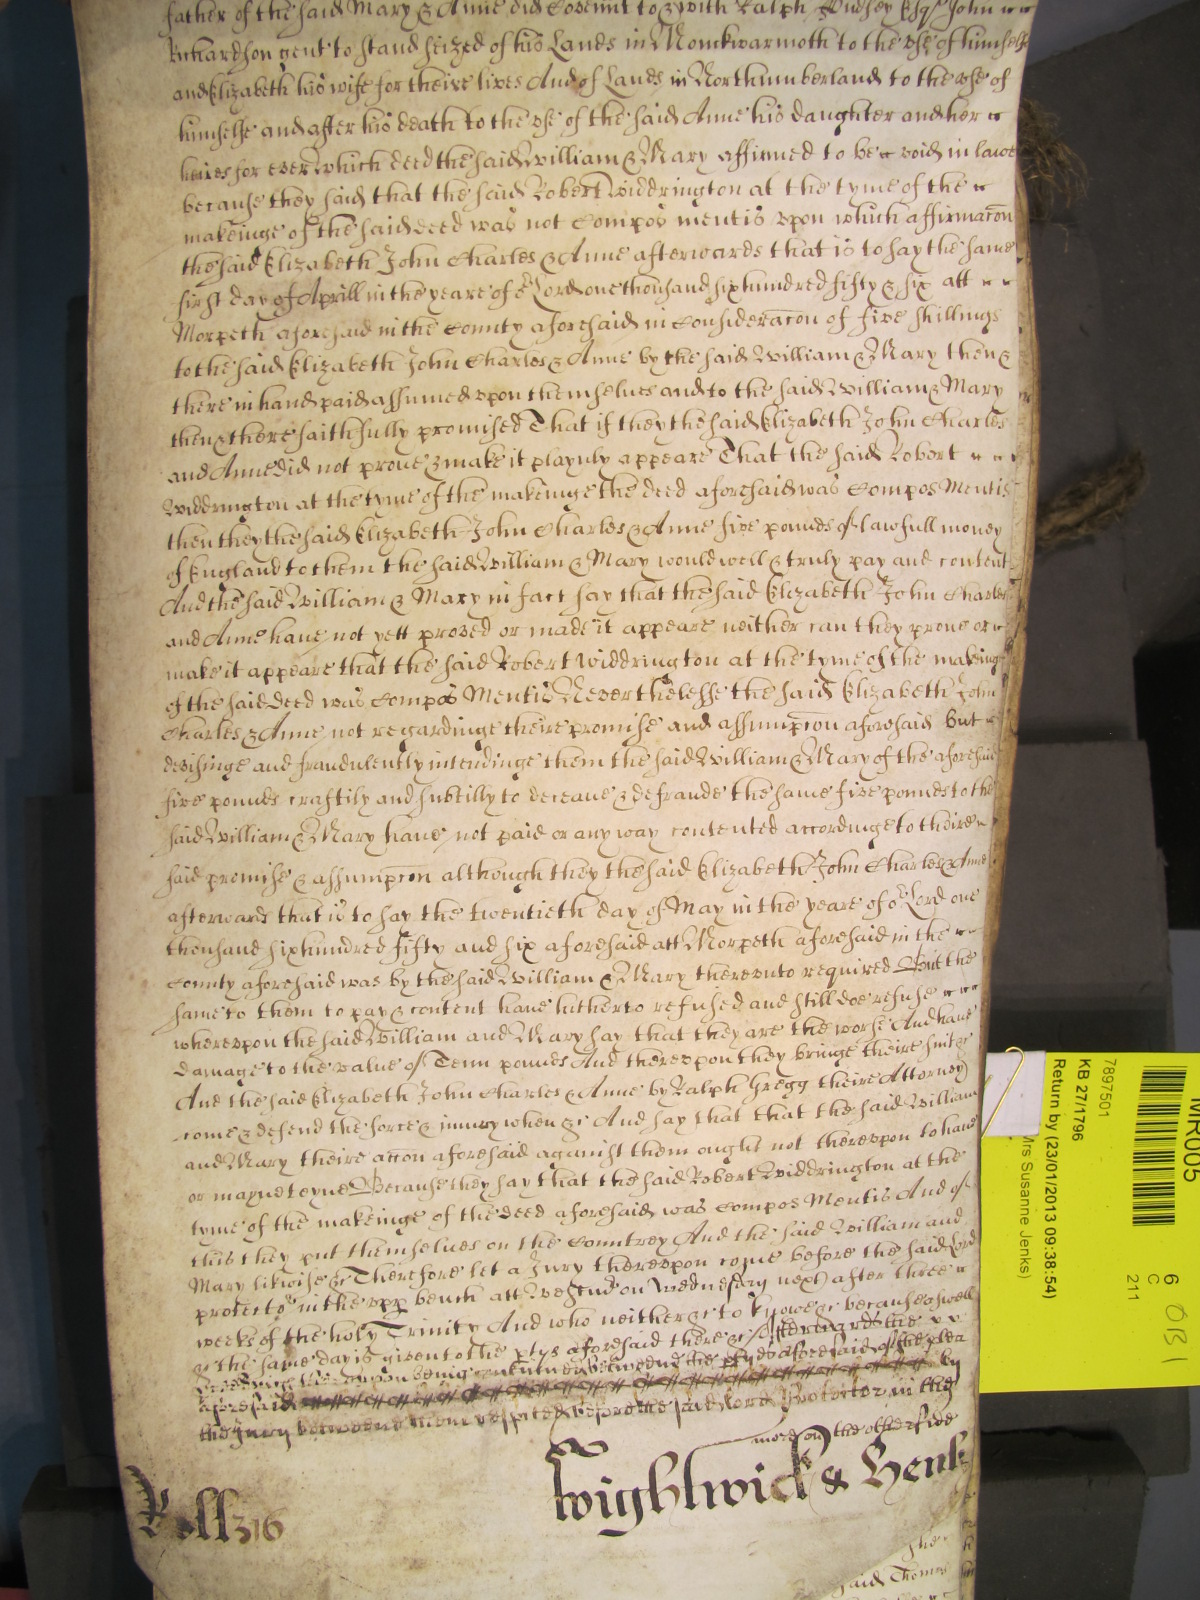 father of the said Mary & Anne did Covennt to & with Ralph Esqr John
Richardson gent to stand seized of his Lands in Monckwarmoth to the vse of himselfe
and Elizabeth his wife for theire lives And of Lands in Northumberland to the vse of
himselfe and after his death to the vse of the said Anne his daughter and her
heires for ever which deed the said William & Mary affirmed to be void in lawe
because they said that the said Robert Widdrington at the tyme of the
makeinge of the said deed was not Compos mentis vpon which affirmacon
the said Elizabeth John Charles & Anne afterwards that is to say the same
first day of Aprill in the yeare of or Lord one thousand six hundred fifty & six att
Morpeth aforesaid in the County aforesaid in Consideracon of five shillings
to the said Elizabeth John Charles & Anne by the said William & Mary then &
there in hand paid assumed vpon themselues and to the said William & Mary
then & there faithfully promised That if they the said Elizabeth John Charles
and Anne did not proue & make it playnly appeare That the said Robert
Widdrington at the tyme of the makeinge the deed aforesaid was Compos Mentis
then they the said Elizabeth John Charles & Anne five pounds of lawfull money
of England to them the said William & Mary would well & truly pay and content
And the said William & Mary in fact say that the said Elizabeth John Charles
and Anne haue not yett proved or made it appeare neither can they proue or
make it appeare that the said Robert Widdrington at the tyme of the making
of the said deed was Compos Mentis Neverthelesse the said Elizabeth John
Charles & Anne not regardinge theire promise and assumpcon aforesaid but
devisinge and fraudulently intendinge them the said William & Mary of the aforesaid
five pounds craftily and subtilly to deceaue & defraude the same five pounds to the
said William & Mary haue not paid or any way contented accordinge to theire
said promise & assumpcon although they the said Elizabeth John Charles & Anne
afterwards that is to say the twentieth day of May in the yeare of or Lord one
thousand six hundred fifty and six aforesaid att Morpeth aforesaid in the
County aforesaid was by the said William & Mary therevnto required But the
same to them to pay & content haue hitherto refused and still doe refuse
wherevpon the said William and Mary say that they are the worse And haue
damage to the value of Tenn pounds And therevpon they bringe theire suite &c
And the said Elizabeth John Charles & Anne by Ralph Gregg theire Attorney
come & defend the force & iniury when &c And say that that the said William
and Mary theire accon aforesaid against them ought not therevpon to haue
or mayneteyne Because they say that the said Robert Widdrington at the
tyme of the makeinge of the deed aforesaid was Compos Mentis And of
this they put themselues on the Countrey And the said William and
Mary likwise &c Therefore let a Jury therevpon come before the said Lord
protector in the vpp bench att Westmr on Wednesday next after three
weekes of the holy Trinity And who neither &c to knowe &c because aswell
&c the same day is given to the ptyes aforesaid there &c Afterwards the
therevpon being continued betweene the ptyes aforesaid of the plea
aforesaid by
the Jury betweene them respited before the said Lord Protector in the
more on the other side
Wightwick & Henl
Roll 316
said Thomas
MR005
7897501
KB 27/1796
Return by (23/01/2013 09:38:54)
Mrs Susanne Jenks)
6
C
211